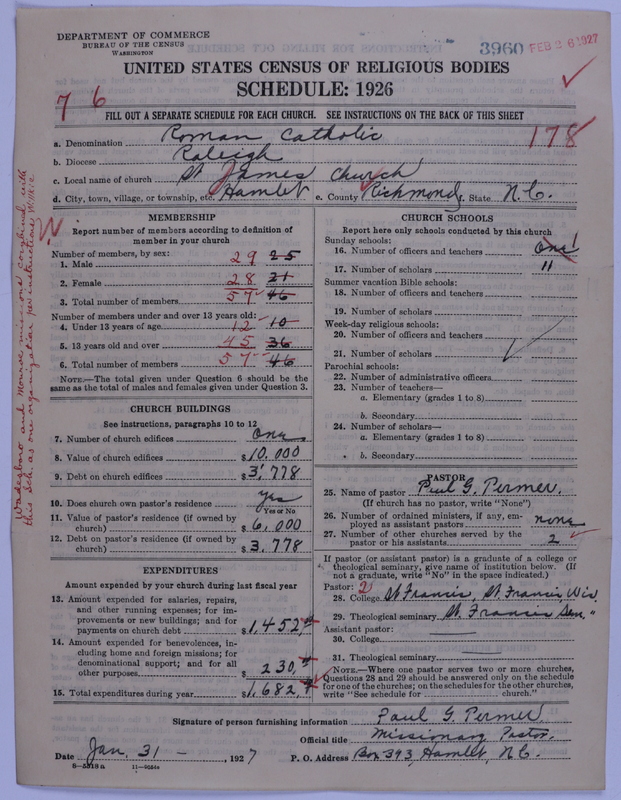 DEPARTMENT OF COMMERCE
BUREAU OF THE CENSUS
WASHINGTON
3960 FEB 26 1927
UNITED STATES CENSUS OF RELIGIOUS BODIES
SCHEDULE: 1926
7 6
FILL OUT A SEPARATE SCHEDULE FOR EACH CHURCH. SEE INSTRUCTIONS ON THE BACK OF THIS SHEET
a. Denomination Roman Catholic 178
b. Diocese Raleigh
c. Local name of church St James Church
d. City, town, village, or township, etc. Hamlet e. County Richmond f. State N.C.
Wadesboro and Monroe missions combined with
this Sch. as one organization per instructions
MEMBERSHIP
Report number of members according to definition of
member in your church
Number of members, by sex:
1. Male 29 25
2. Female 28 21
3. Total number of members 57 46
Number of members under and over 13 years old:
4. Under 13 years of age 12 10
5. 13 years old and over 45 36
6. Total number of members 57 46
NOTE.—The total given under Question 6 should be the
same as the total of males and females given under Question 3.
CHURCH BUILDINGS
See instructions, paragraphs 10 to 12
7. Number of church edifices One
8. Value of church edifices $10,000
9. Debt on church edifices $3,778
10. Does church own pastor's residence Yes
Yes or No
11. Value of pastor's residence (if owned by
church) $6,000
12. Debt on pastor's residence (if owned by
church) $3,778
EXPENDITURES
Amount expended by your church during last fiscal year
13. Amount expended for salaries, repairs,
and other running expenses; for im-
provements or new buildings; and for
payments on church debt $1,452
14. Amount expended for benevolences, in-
cluding home and foreign missions; for
denominational support; and for all
other purposes $230
15. Total expenditures during year $1,682
CHURCH SCHOOLS
Report here only schools conducted by this church
Sunday schools:
16. Number of officers and teachers One 1
17. Number of scholars 11
Summer vacation Bible schools:
18. Number of officers and teachers
19. Number of scholars
Week-day religious schools:
20. Number of officers and teachers
21. Number of scholars
Parochial schools:
22. Number of administrative officers
23. Number of teachers—
a. Elementary (grades 1 to 8)
b. Secondary
24. Number of scholars—
a. Elementary (grades 1 to 8)
b. Secondary
PASTOR
25. Name of pastor Paul G. Termer.
(If church has no pastor, write "None")
26. Number of ordained ministers, if any, em-
ployed as assistant pastors none
27. Number of other churches served by the
pastor or his assistants 2
If pastor (or assistant pastor) is a graduate of a college or
theological seminary, give name of institution below. (If
not a graduate, write "No" in the space indicated.)
Pastor: 2
28. College St Francis, St. Francis Wis.
29. Theological seminary St. Francis Sem. "
Assistant pastor:
30. College
31. Theological seminary
NOTE.—Where one pastor serves two or more churches,
Questions 28 and 29 should be answered only on the schedule
for one of the churches; on the schedules for the other churches,
write "See schedule for church."
Signature of person furnishing information Paul G. Termer
Official title Missionary Pastor.
Date Jan. 31 — 1927 P. O. Address Box 393, Hamlet, N.C.